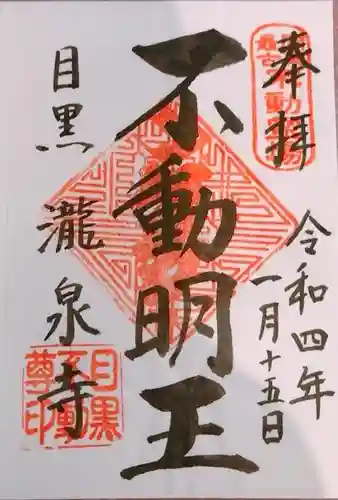 奉拝
令和四年
一月十五日
不動明王
目黒
瀧泉寺
目黒
不動
尊印